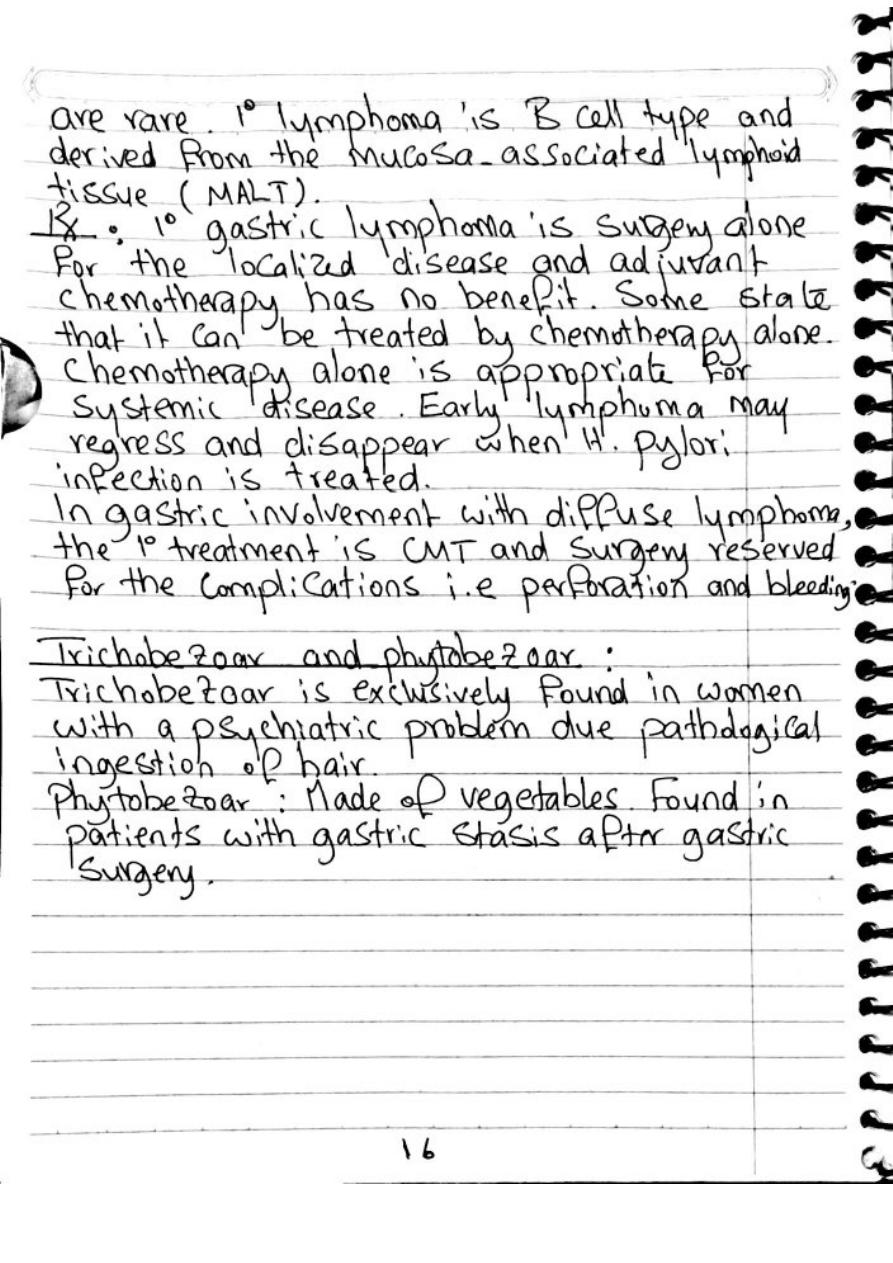 are rare. 1° lymphoma is B cell type and
derived from the mucosa-associated lymphoid
tissue (MALT).
Rx: 1° gastric lymphoma is surgery alone
for the localized disease and adjuvant
chemotherapy has no benefit. Some state
that it can be treated by chemotherapy alone.
Chemotherapy alone is appropriate for
systemic disease. Early lymphoma may
regress and disappear when H. pylori
infection is treated.
In gastric involvement with diffuse lymphoma,
the 1° treatment is CMT and surgery reserved
for the complications i.e perforation and bleeding.
Trichobezoar and phytobezoar :
Trichobezoar is exclusively found in women
with a psychiatric problem due pathological
ingestion of hair.
Phytobezoar : Made of vegetables. Found in
patients with gastric stasis after gastric
surgery.
16